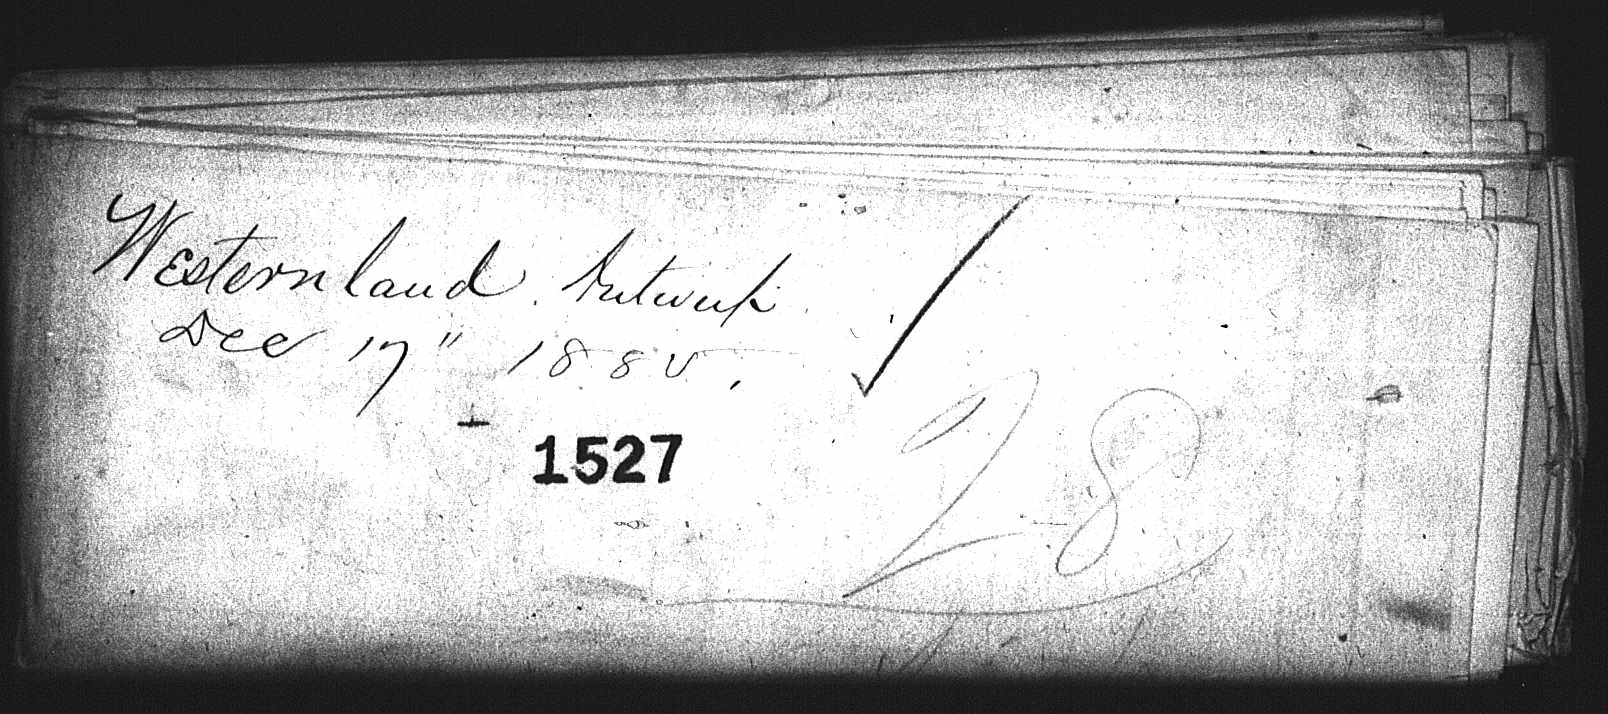 Westernland Antwerp
Dec 17" 1885.
1527
28